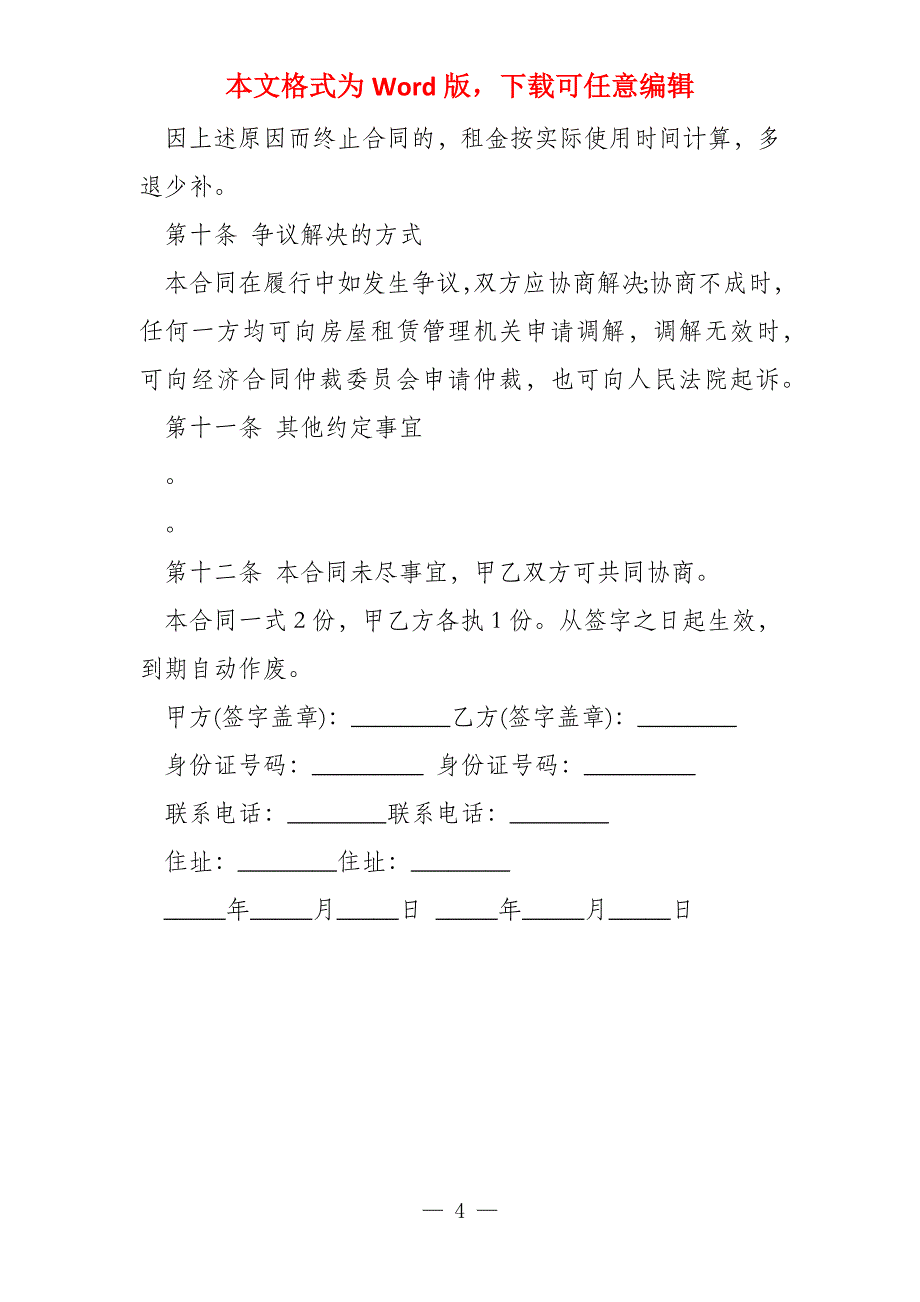 本文格式为 Word 版，下载可任意编辑
因上述原因而终止合同的，租金按实际使用时间计算，多
退少补。
第十条 争议解决的方式
本合同在履行中如发生争议，双方应协商解决;协商不成时，
任何一方均可向房屋租赁管理机关申请调解，调解无效时，
可向经济合同仲裁委员会申请仲裁，也可向人民法院起诉。
第十一条 其他约定事宜
。
。
第十二条 本合同未尽事宜，甲乙双方可共同协商。
本合同一式 2 份，甲乙方各执 1 份。从签字之日起生效，
到期自动作废。
甲方(签字盖章)：________乙方(签字盖章)：________
身份证号码：_________ 身份证号码：_________
联系电话：________联系电话：________
住址：________住址：________
_____年_____月_____日 _____年_____月_____日
— 4 —